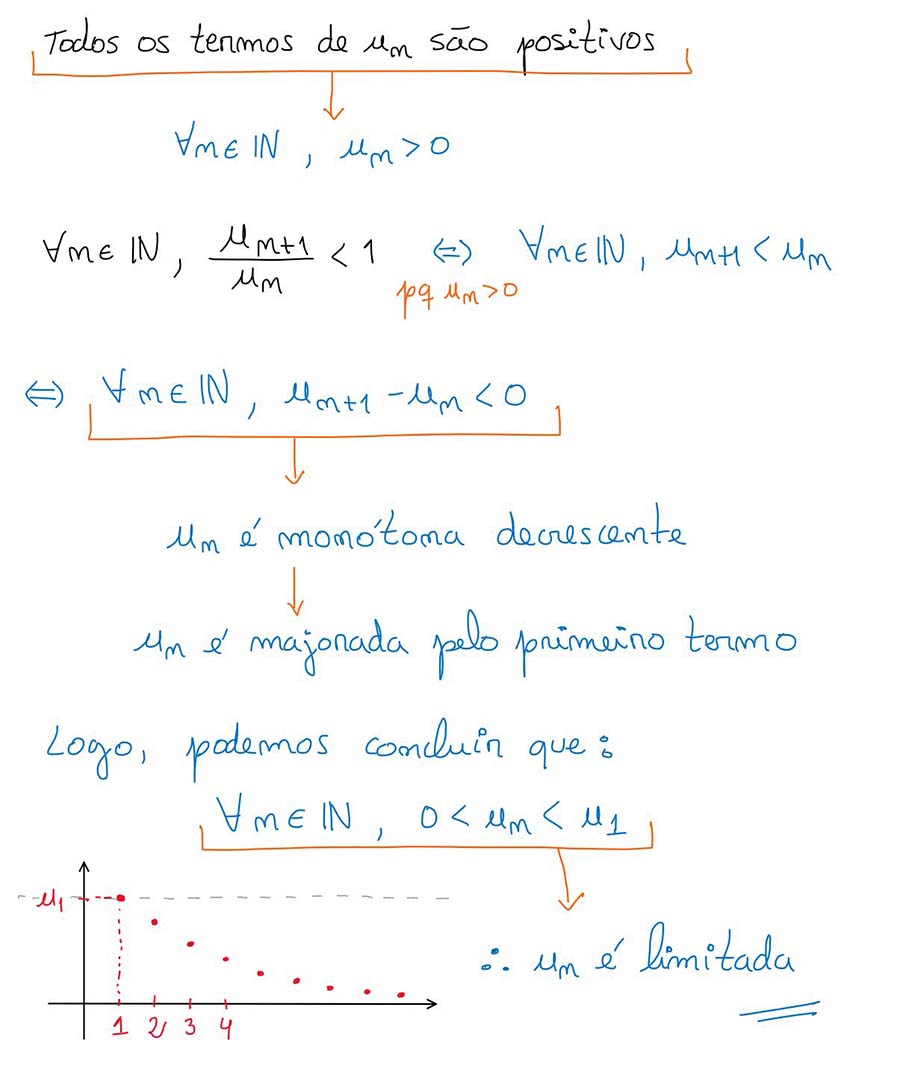 Todos os termos de uₙ são positivos
∀n∈ℕ, uₙ>0
∀n∈ℕ, uₙ₊₁/uₙ < 1 ⇔ ∀n∈ℕ, uₙ₊₁ < uₙ
pq uₙ>0
⇔ ∀n∈ℕ, uₙ₊₁ - uₙ < 0
uₙ é monótona decrescente
uₙ é majorada pelo primeiro termo
Logo, podemos concluir que:
∀n∈ℕ, 0 < uₙ < u₁
u₁
∴ uₙ é limitada
1 2 3 4